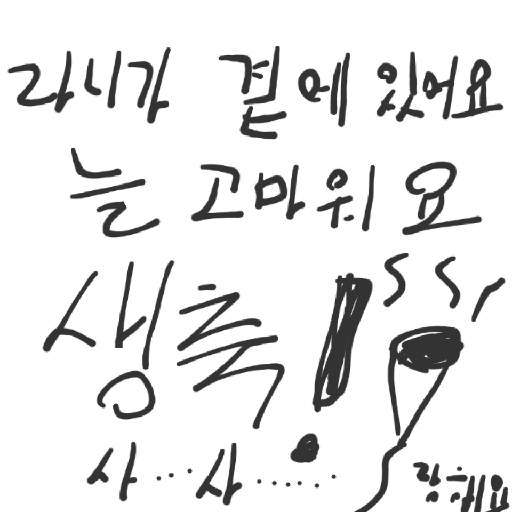 라니가 곁에 있어요
늘 고마워요
생축!
사...사......
랑해요